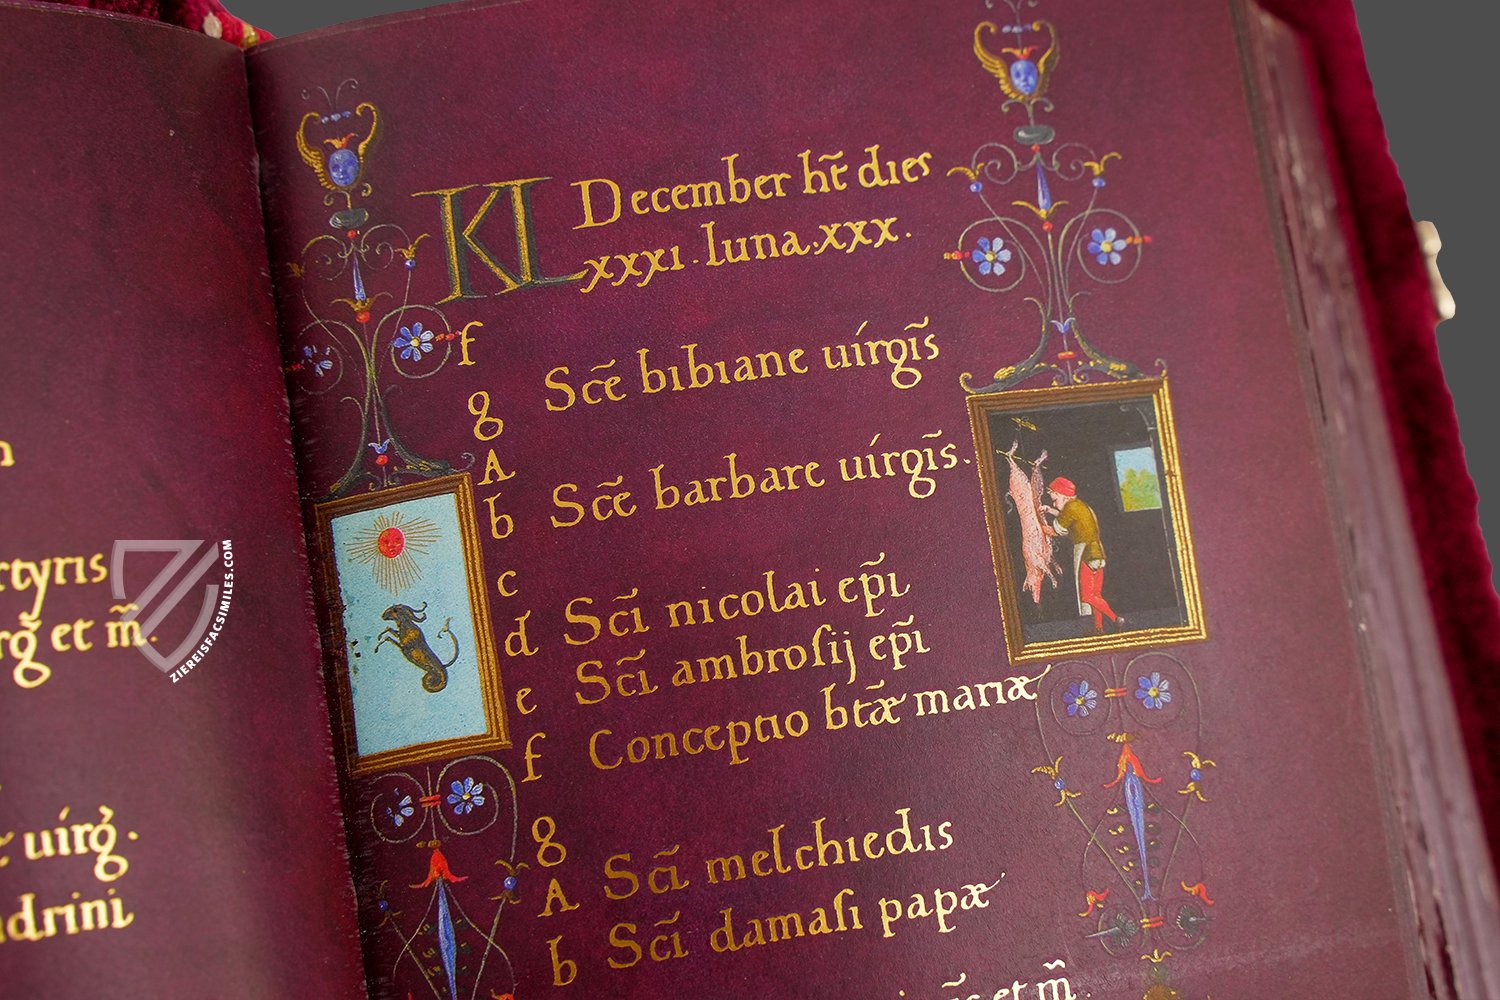 rtyris
et m̃.
uírg̃.
ZIEREISFACSIMILES.COM
KL December ht̃ dies
xxxı . luna.xxx.
f
g Scẽ bıbıane uírgĩs
A
b Scẽ barbare uírgĩs.
c
d Scĩ nicolai ep̃ı
e Scĩ ambroſij ep̃ı
f Conceptıo bt̃æ marıæ
g
A Scĩ melchıedıs
b Scĩ damaſı papæ
et m̃.